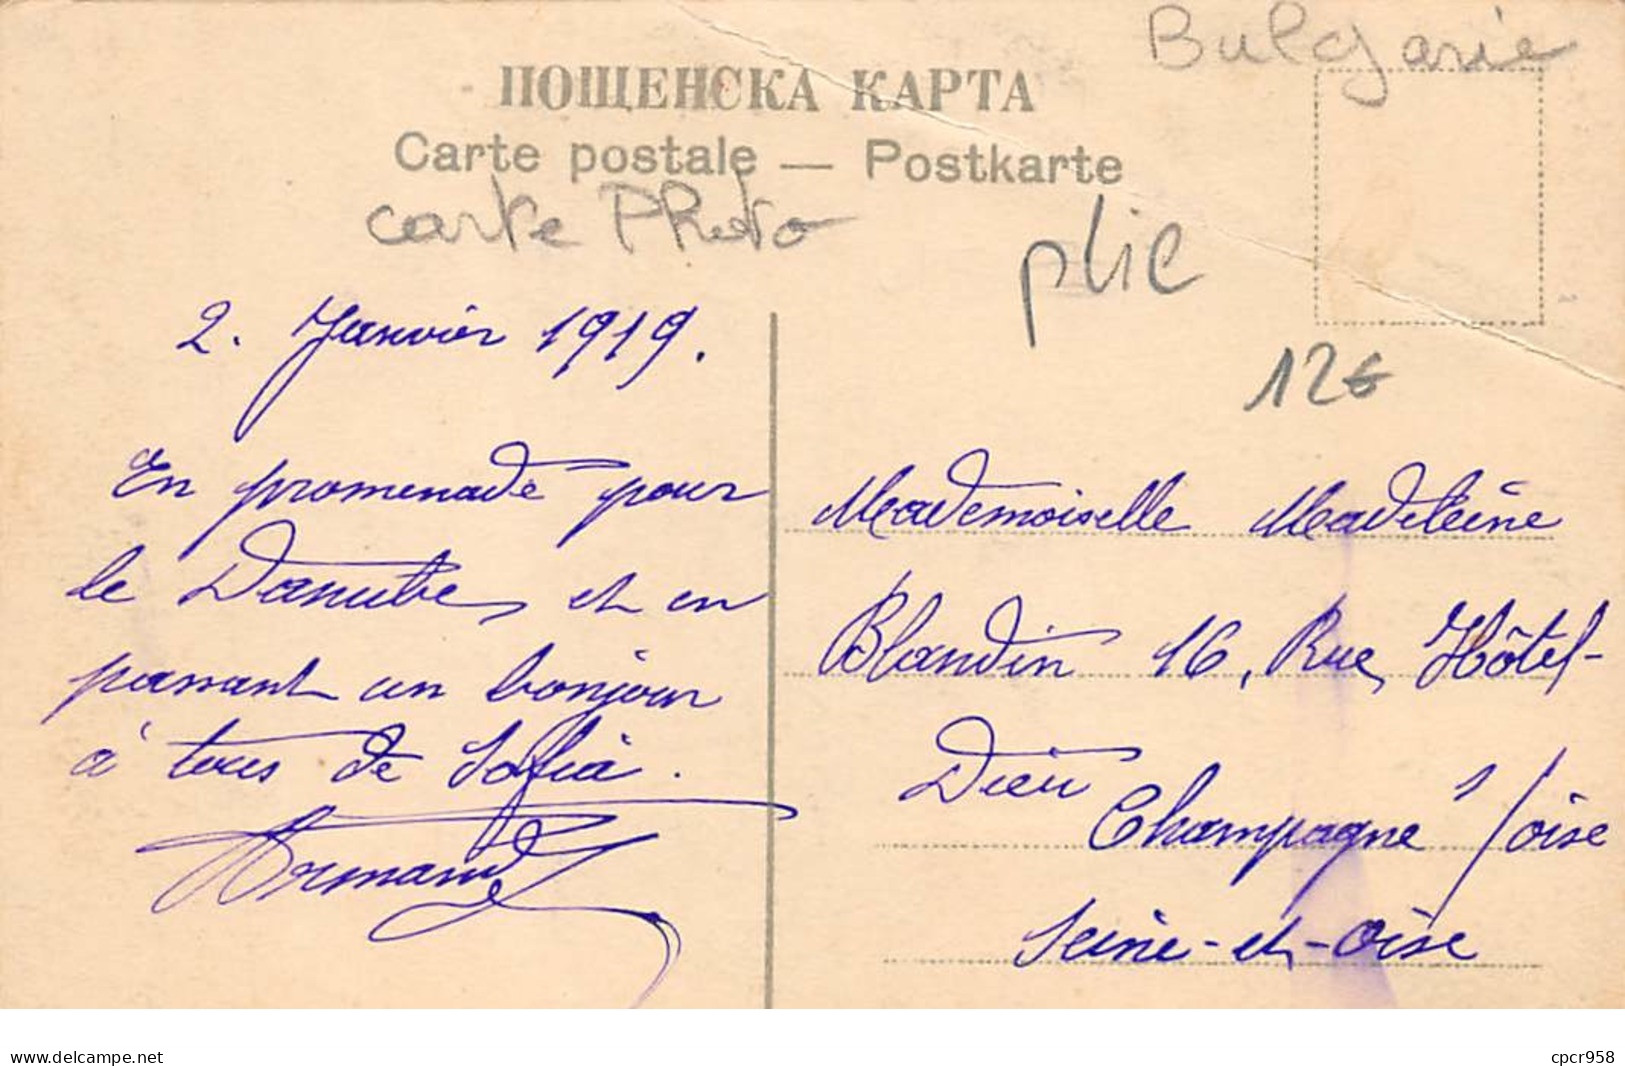 Bulgarie
ПОЩЕНСКА КАРТА
Carte postale — Postkarte
carte Photo
plie
12€
2. Janvier 1919.
En promenade pour
le Danube et en
passant un bonjour
à tous de Sofia.
Armand
Mademoiselle Madeleine
Blandin 16, Rue Hôtel-
Dieu
Champagne s/oise
Seine-et-Oise
www.delcampe.net
cpcr958